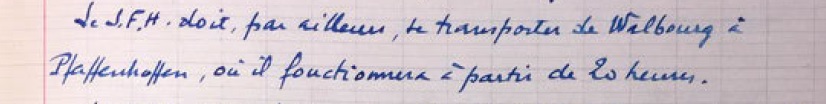 Le S.F.H. doit, par ailleurs, se transporter de Walbourg à
Pfaffenhoffen, où il fonctionnera à partir de 20 heures.